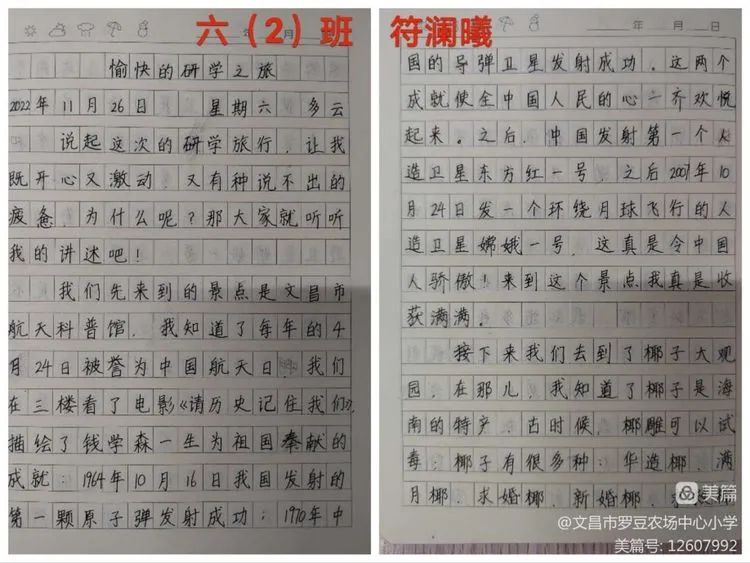 六（2）班
年 月
愉快的研学之旅
2022年11月26日 星期六 多云
说起这次的研学旅行，让我
既开心又激动，又有种说不出的
疲惫，为什么呢？那大家就听听
我的讲述吧！
我们先来到的景点是文昌市
航天科普馆，我知道了每年的4
月24日被誉为中国航天日，我们
在三楼看了电影《请历史记住我们》，
描绘了钱学森一生为祖国奉献的
成就：1964年10月16日我国发射的
第一颗原子弹发射成功；1970年中
符澜曦
年 月 日
国的导弹卫星发射成功。这两个
成就使全中国人民的心一齐欢悦
起来。之后，中国发射第一个人
造卫星东方红一号，之后2007年10
月24日发一个环绕月球飞行的人
造卫星嫦娥一号，这真是令中国
人骄傲！来到这个景点我真是收
获满满。
接下来我们去到了椰子大观
园，在那儿，我知道了椰子是海
南的特产，古时候，椰雕可以试
毒；椰子有很多种：华造椰，满
月椰，求婚椰，新婚椰，
美篇
@文昌市罗豆农场中心小学
美篇号: 12607992